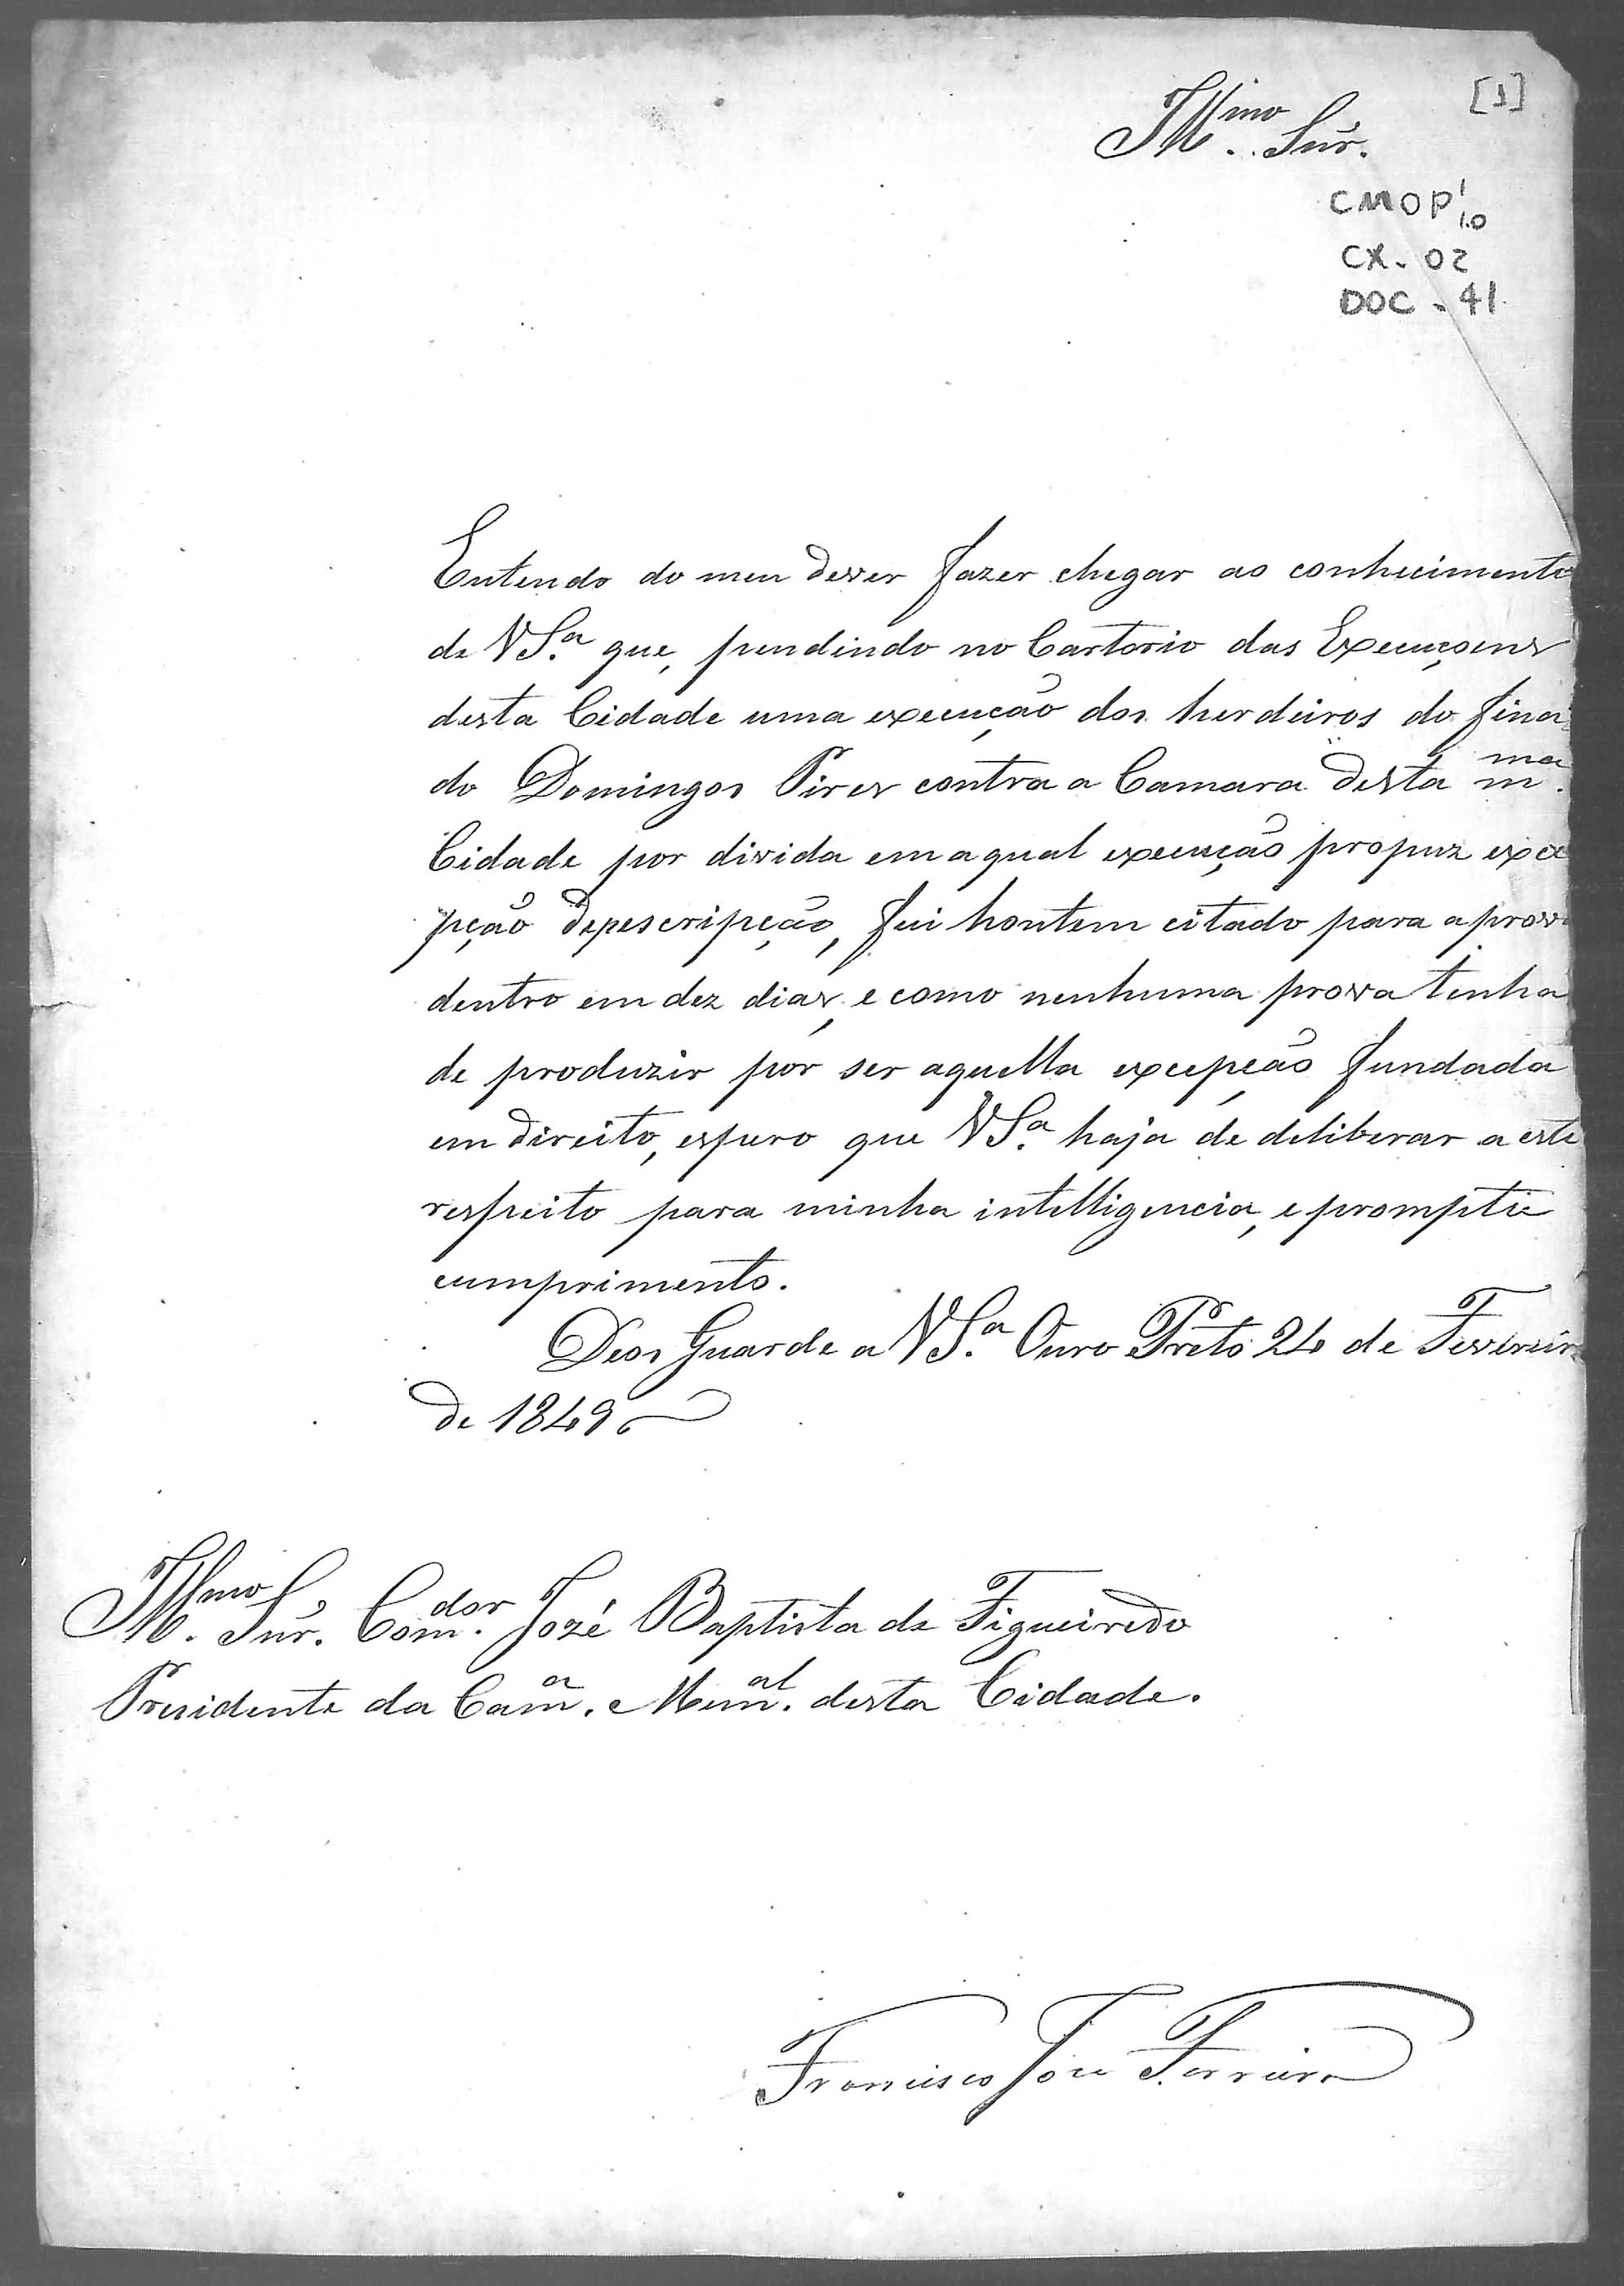 [1]
Illmo. Snr.
CMOP 1.0
CX. 02
DOC. 41
Entendo do meu dever fazer chegar ao conhecimento
de VSa. que, pendindo no Cartorio das Execuçoens
desta Cidade uma execução dos herdeiros do fina
do Domingos Pires contra a Camara desta mma.
Cidade por divida em a qual execução propuz exce
pção depescripção, fui hontem citado para a prova
dentro em dez dias, e como nenhuma prova tenha
de produzir por ser aquella excepção fundada
em direito, espero que VSa. haja de deliberar a este
respeito para minha intelligencia, e prompto
cumprimento.
Deos Guarde a VSa. Ouro Preto 24 de Fevereiro
de 1849
Illmo. Snr. Comdor. Jozé Baptista de Figueiredo
Presidente da Cama. Munal. desta Cidade.
Francisco Jose Ferreira